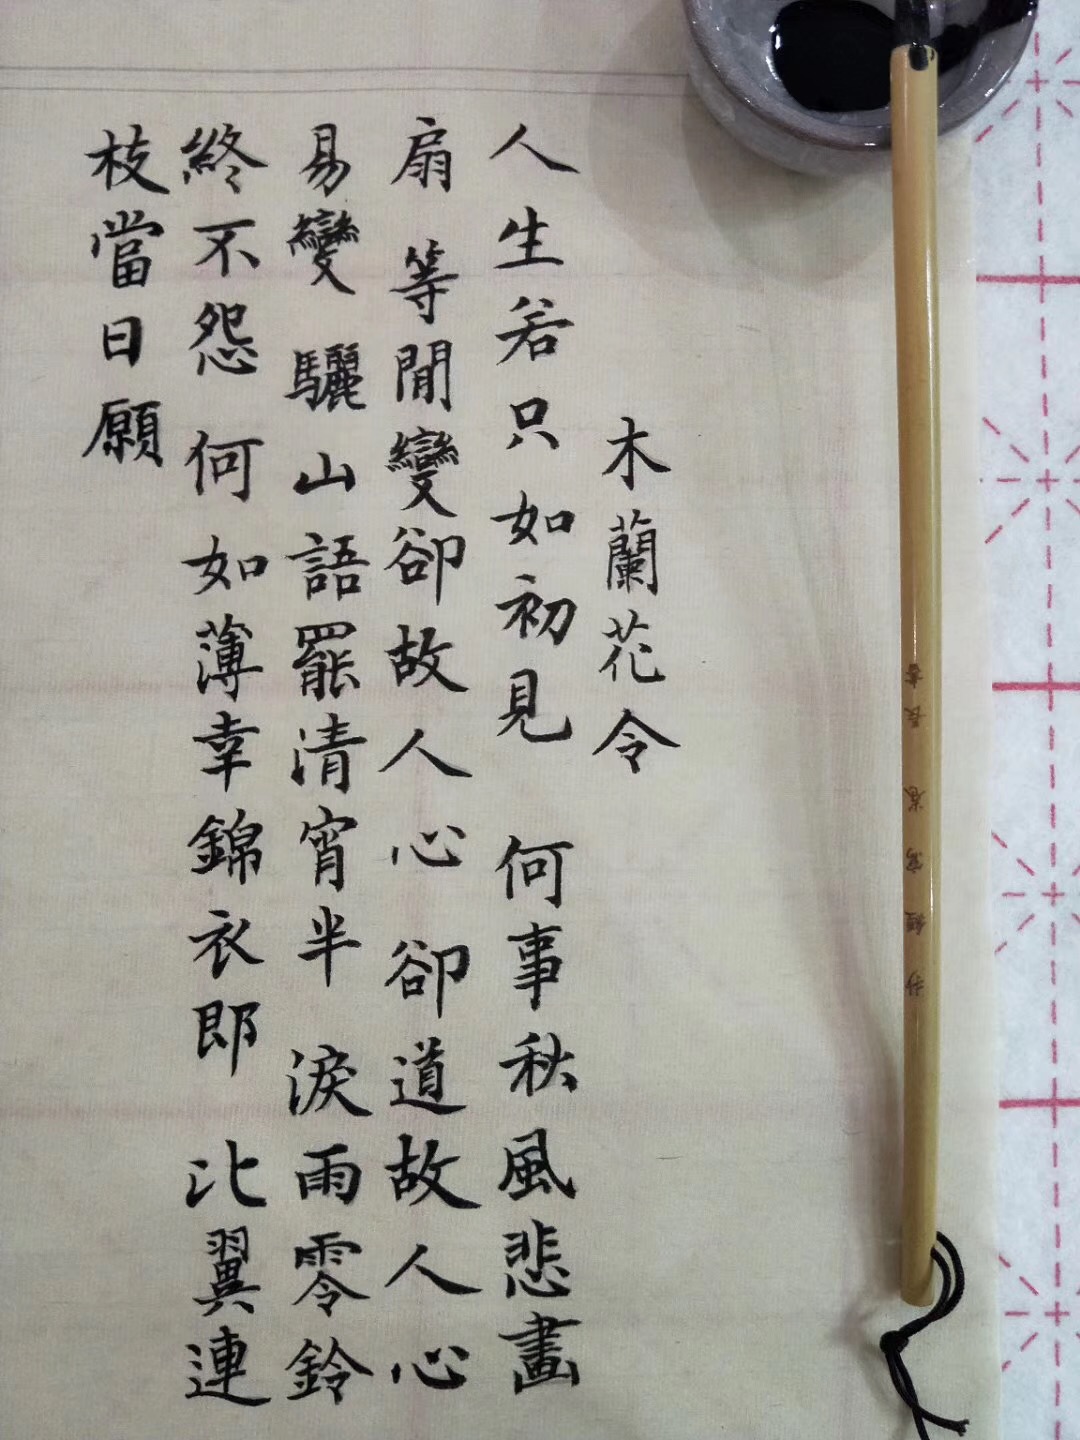 木蘭花令
人生若只如初見 何事秋風悲畫
扇 等閒變卻故人心 卻道故人心
易變 驪山語罷清宵半 淚雨零鈴
終不怨 何如薄幸錦衣郎 比翼連
枝當日願